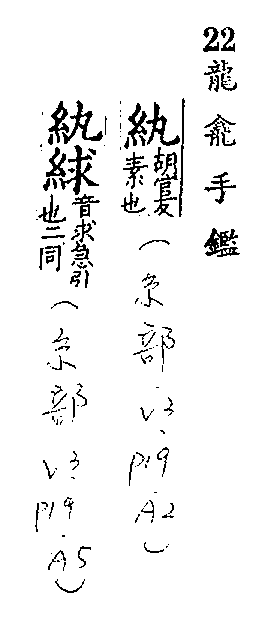 22 龍龕手鑑
紈胡官反素也（糸部 V3、P19、A2）
紈絿音求急引也二同（糸部 V3、P19、A5）